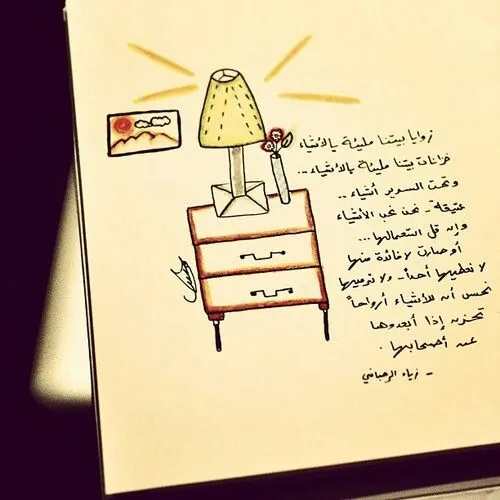 زوايا بيتنا مليئة بالأشياء
خزانات بيتنا مليئة بالأشياء ...
وتحت السرير أشياء ..
عتيقة - نحن نحب الأشياء
وإن قل استعمالها ...
أو صارت لا فائدة منها
لا نعطيها أحداً - ولا نرميها
نحس أن للأشياء أرواحاً
تحزن إذا أبعدوها
عن أصحابها .
- زياد الرحباني